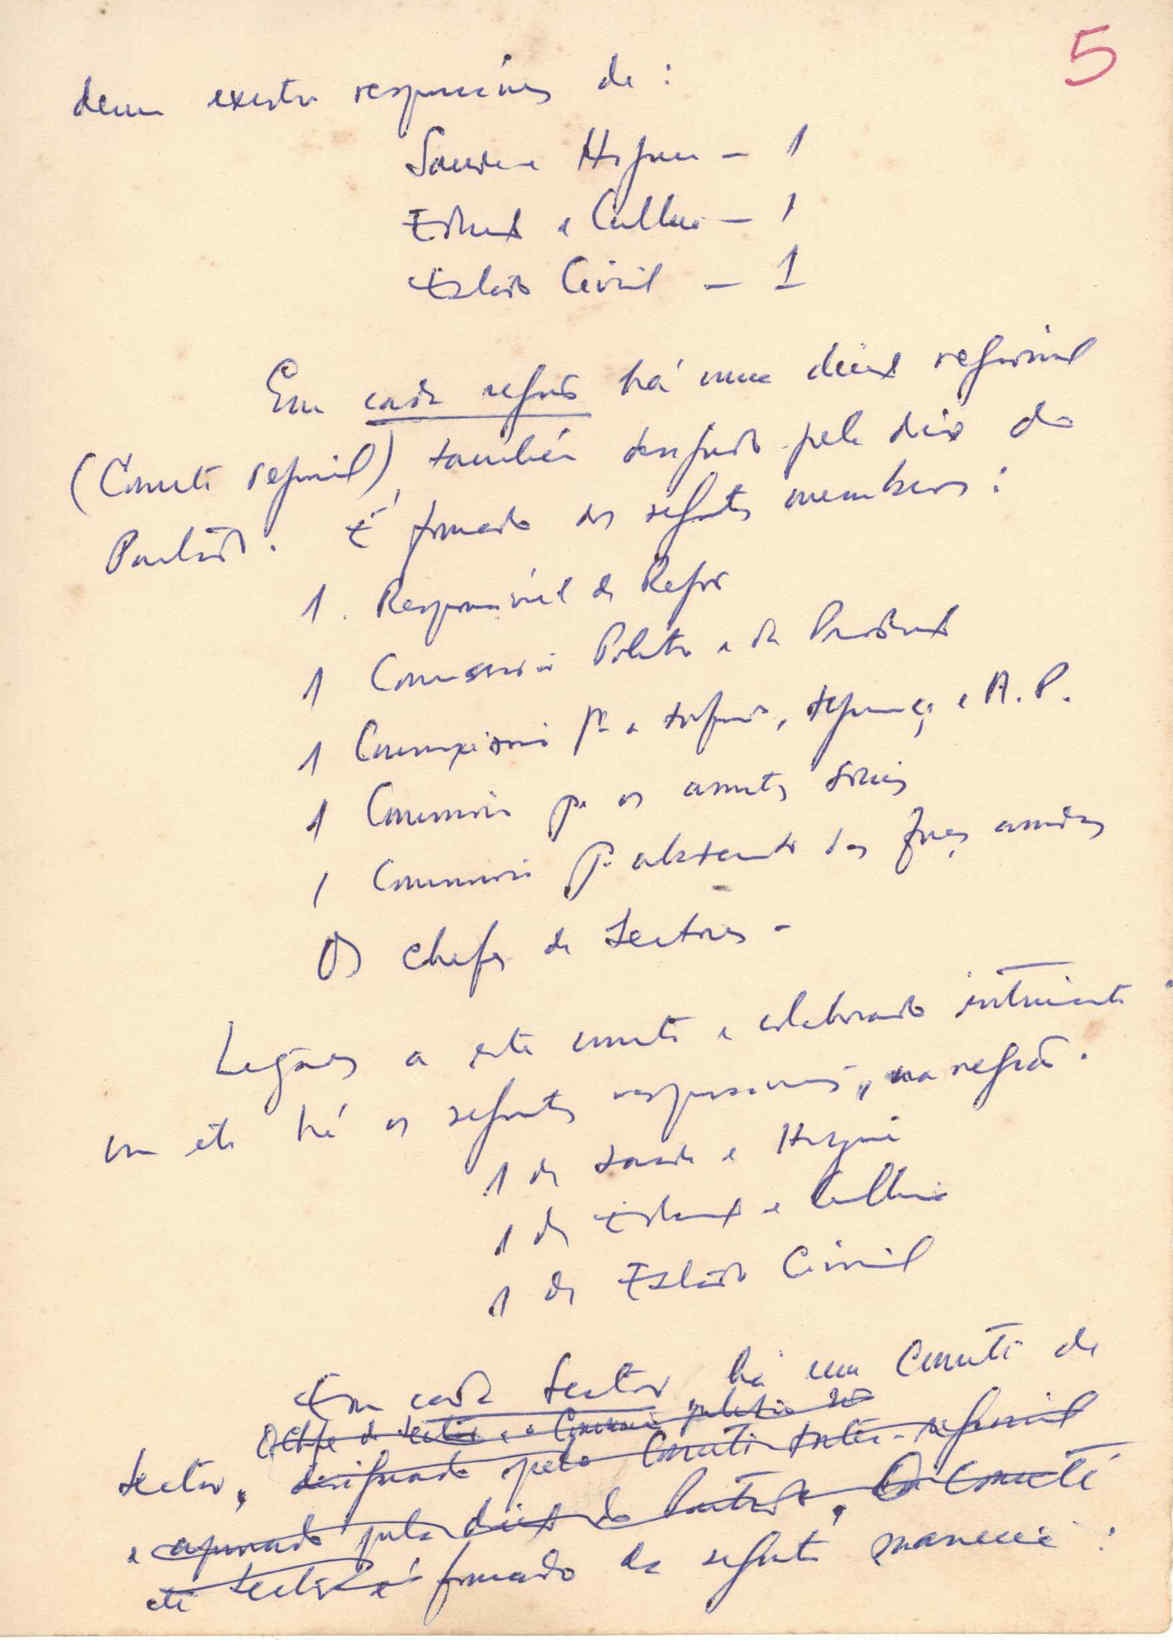 5
devem existir responsáveis de:
Saúde e Higiene - 1
Educaç e Cultura - 1
Estado Civil - 1
Em cada região há uma direcç regional
(Comité regional), também designado pela direc do
Partido. É formado dos seguintes membros:
1. Responsável da Região
1 Comissário Político e da Produção
1 Comissário pª a informaç, segurança e A.P.
1 Comissário pª os assuntos sociais
1 Comissário pª abastecimento das forças armadas
Os chefes de Sectores -
Legados a este comité e colaborando intimamente
com ele há os seguintes responsáveis, na região.
1 da Saúde e Higiene
1 da Educaç e Cultura
1 do Estado Civil
Em cada Sector há um Comité de
O chefe do sector e o Comissário político são
Sector, designado pelo Comité Inter-regional
e aprovado pela direcç do Partido, O Comité
de Sector é formado da seguinte maneira: